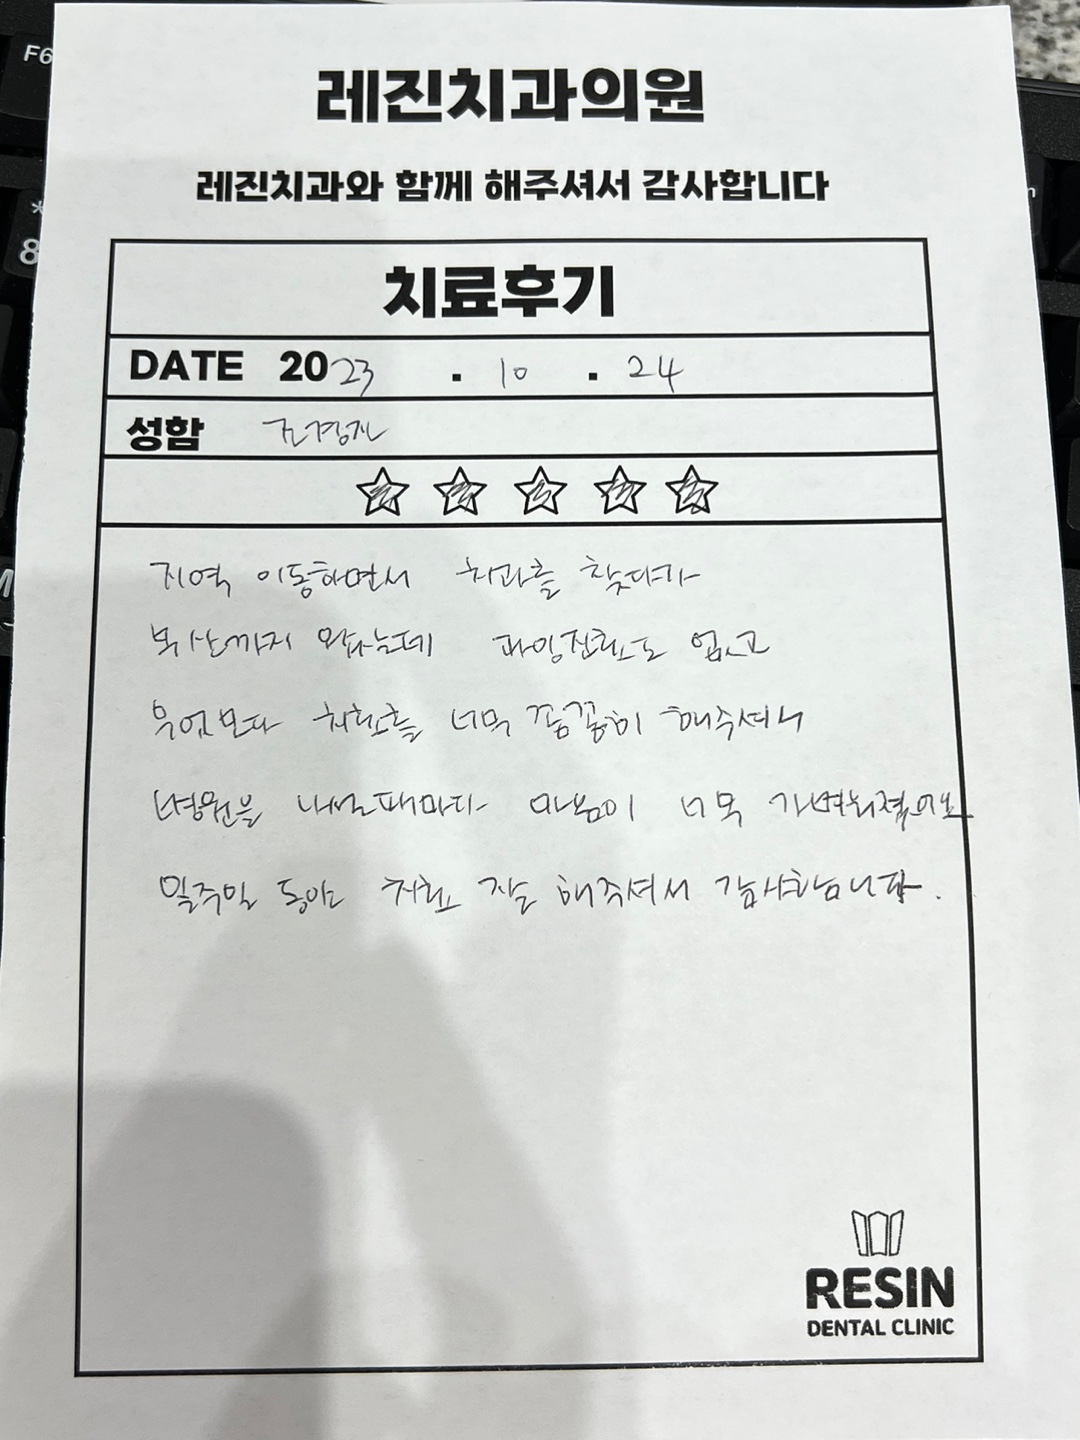 레진치과의원
레진치과와 함께 해주셔서 감사합니다
치료후기
DATE 2023 . 10 . 24
성함
지역 이동하면서 치과를 찾다가
까지 왔는데 과잉진료도 없고
무엇보다 치료를 너무 꼼꼼히 해주셔서
병원을 나설때마다 마음이 너무 가벼워졌어요
일주일 동안 치료 잘 해주셔서 감사합니다.
RESIN
DENTAL CLINIC
F6
*
8